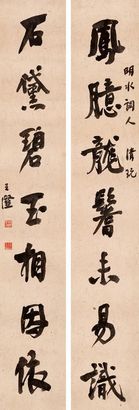 明水詞人 清玩
鳳臆龍鬐未易識
石黛碧玉相因依
王瀣